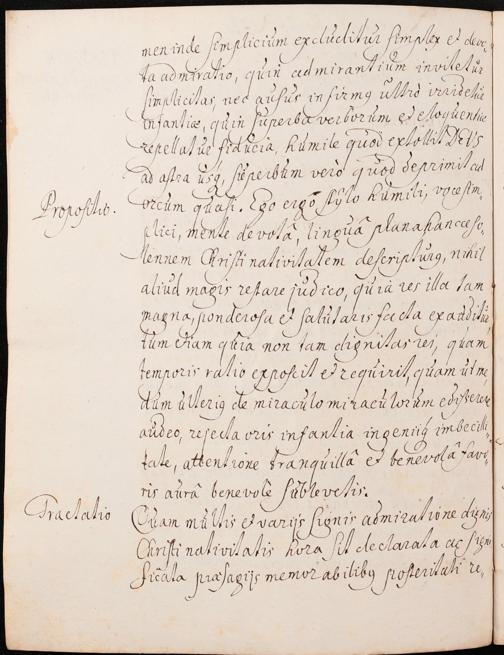 men inde simplicium excluditur simplex et devo-
ta admiratio, quin admirantium invitetur
simplicitas, nec ausus infirmq ultrò irridetur
infantiæ, quin superba verborum et eloquentiæ
repellatur fiducia, humile quod extollit DEUS
ad astra usq, superbum verò quod deprimit ad
Propositio.
orcum quasi. Ego ergò stylo humili, voce sim-
plici, mente devotâ, linguâ planà
lennem Christi nativitatem descripturq, nihil
aliud magis restare judico, quia res illa tam
magna, ponderosa et salutaris facta
tum etiam quia non tam dignitas rei, quam
temporis ratio exposcit et requirit, quam ut me-
dum ulteriq de miraculo miraculorum edisserere
audeo, rejecta oris infantia ingeniiq imbecilli-
tate, attentione tranquillâ et benevolâ favo-
ris aurâ benevolè sublevetis.
Tractatio
Quam multis et varijs signis admiratione dignis
Christi nativitatis hora sit declarata ac signi-
ficata præsagijs memorabilibq posteritati re-